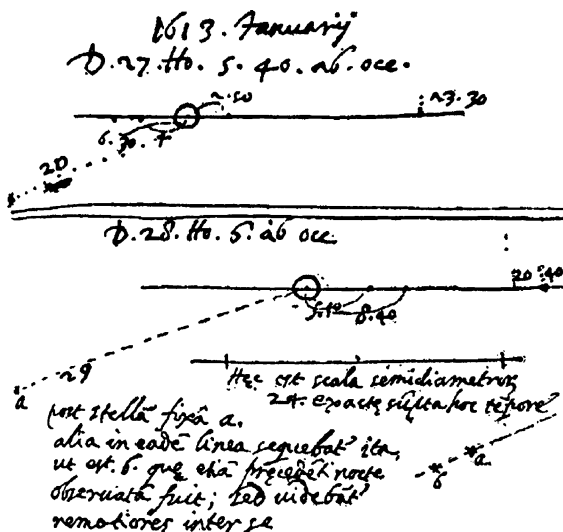 1613. Januarij
D. 27. Ho. 5. 40. ab. occ.
2.50
23.30
6.30. 4
20.
D. 28. Ho. 6. ab occ
20.40
5.10
8.40
29
a
Hęc est scala semidiametrorũ
24. exactę sũpta hoc tẽpore
post stellã fixã a.
alia in eadẽ linea sequebat' ita,
ut est. b. quę etiã pręcedẽti nocte
observata fuit; sed videbãt'
remotiores inter se
b
a